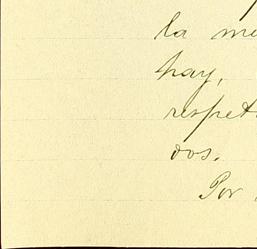 la me
hay,
respet
dos.
Por